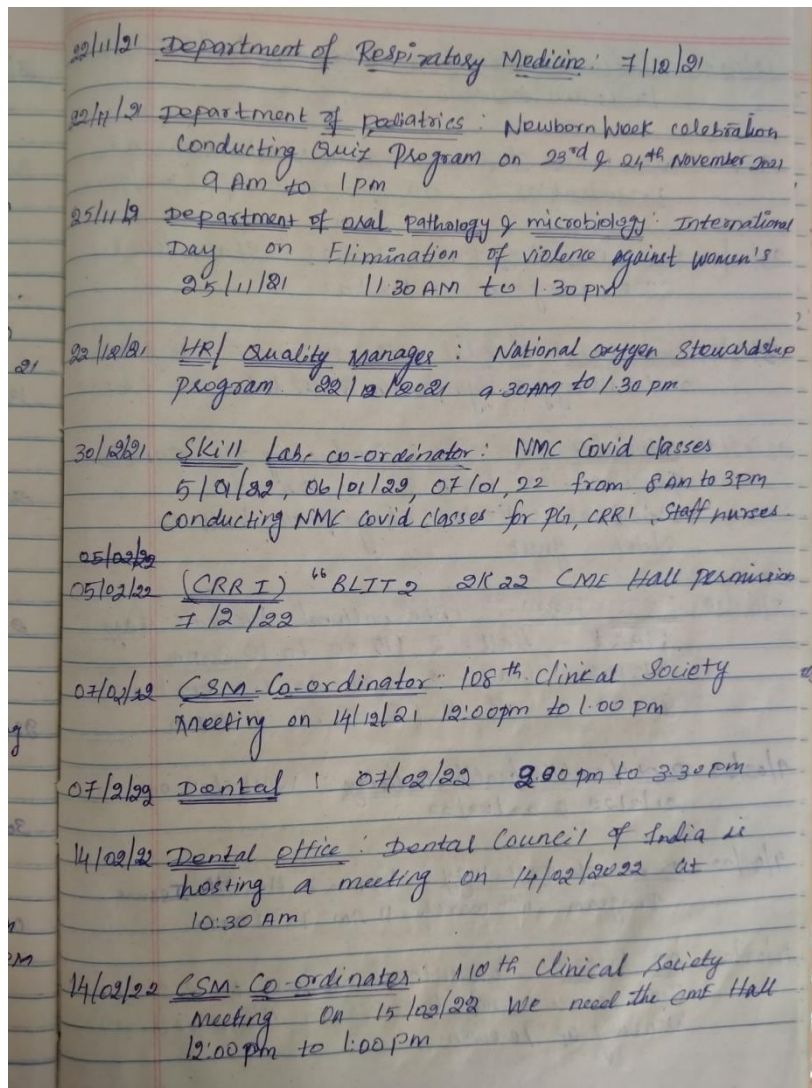 22/11/21 Department of Respiratory Medicine: 7/12/21
22/11/21 Department of pediatrics: Newborn Week celebration
Conducting Quiz Program on 23rd & 24th November 2021
9 Am to 1pm
25/11/21 Department of oral pathology & microbiology: International
Day on Elimination of violence against women's
25/11/21 11.30 AM to 1.30 pm
22/12/21 HR/ Quality Manager: National oxygen Stewardship
program 22/12/2021 9.30AM to 1.30 pm
30/12/21 Skill Lab. co-ordinator: NMC Covid classes
5/01/22, 06/01/22, 07/01,22 from 8 Am to 3pm
Conducting NMC Covid classes for PG, CRRI, Staff nurses
05/02/22
05/02/22 (CRRI) "BLIT2 2K22 CME Hall permission
7/2/22
07/02/22 CSM-Co-ordinator: 108th Clinical Society
Meeting on 14/12/21 12:00pm to 1.00 pm
07/2/22 Dental : 07/02/22 pm to 3.30pm
14/02/22 Dental office: Dental Council of India is
hosting a meeting on 14/02/2022 at
10:30 Am
14/02/22 CSM-Co-ordinator: 110th Clinical Society
Meeting On 15/02/22 We need the cme Hall
12:00pm to 1:00pm